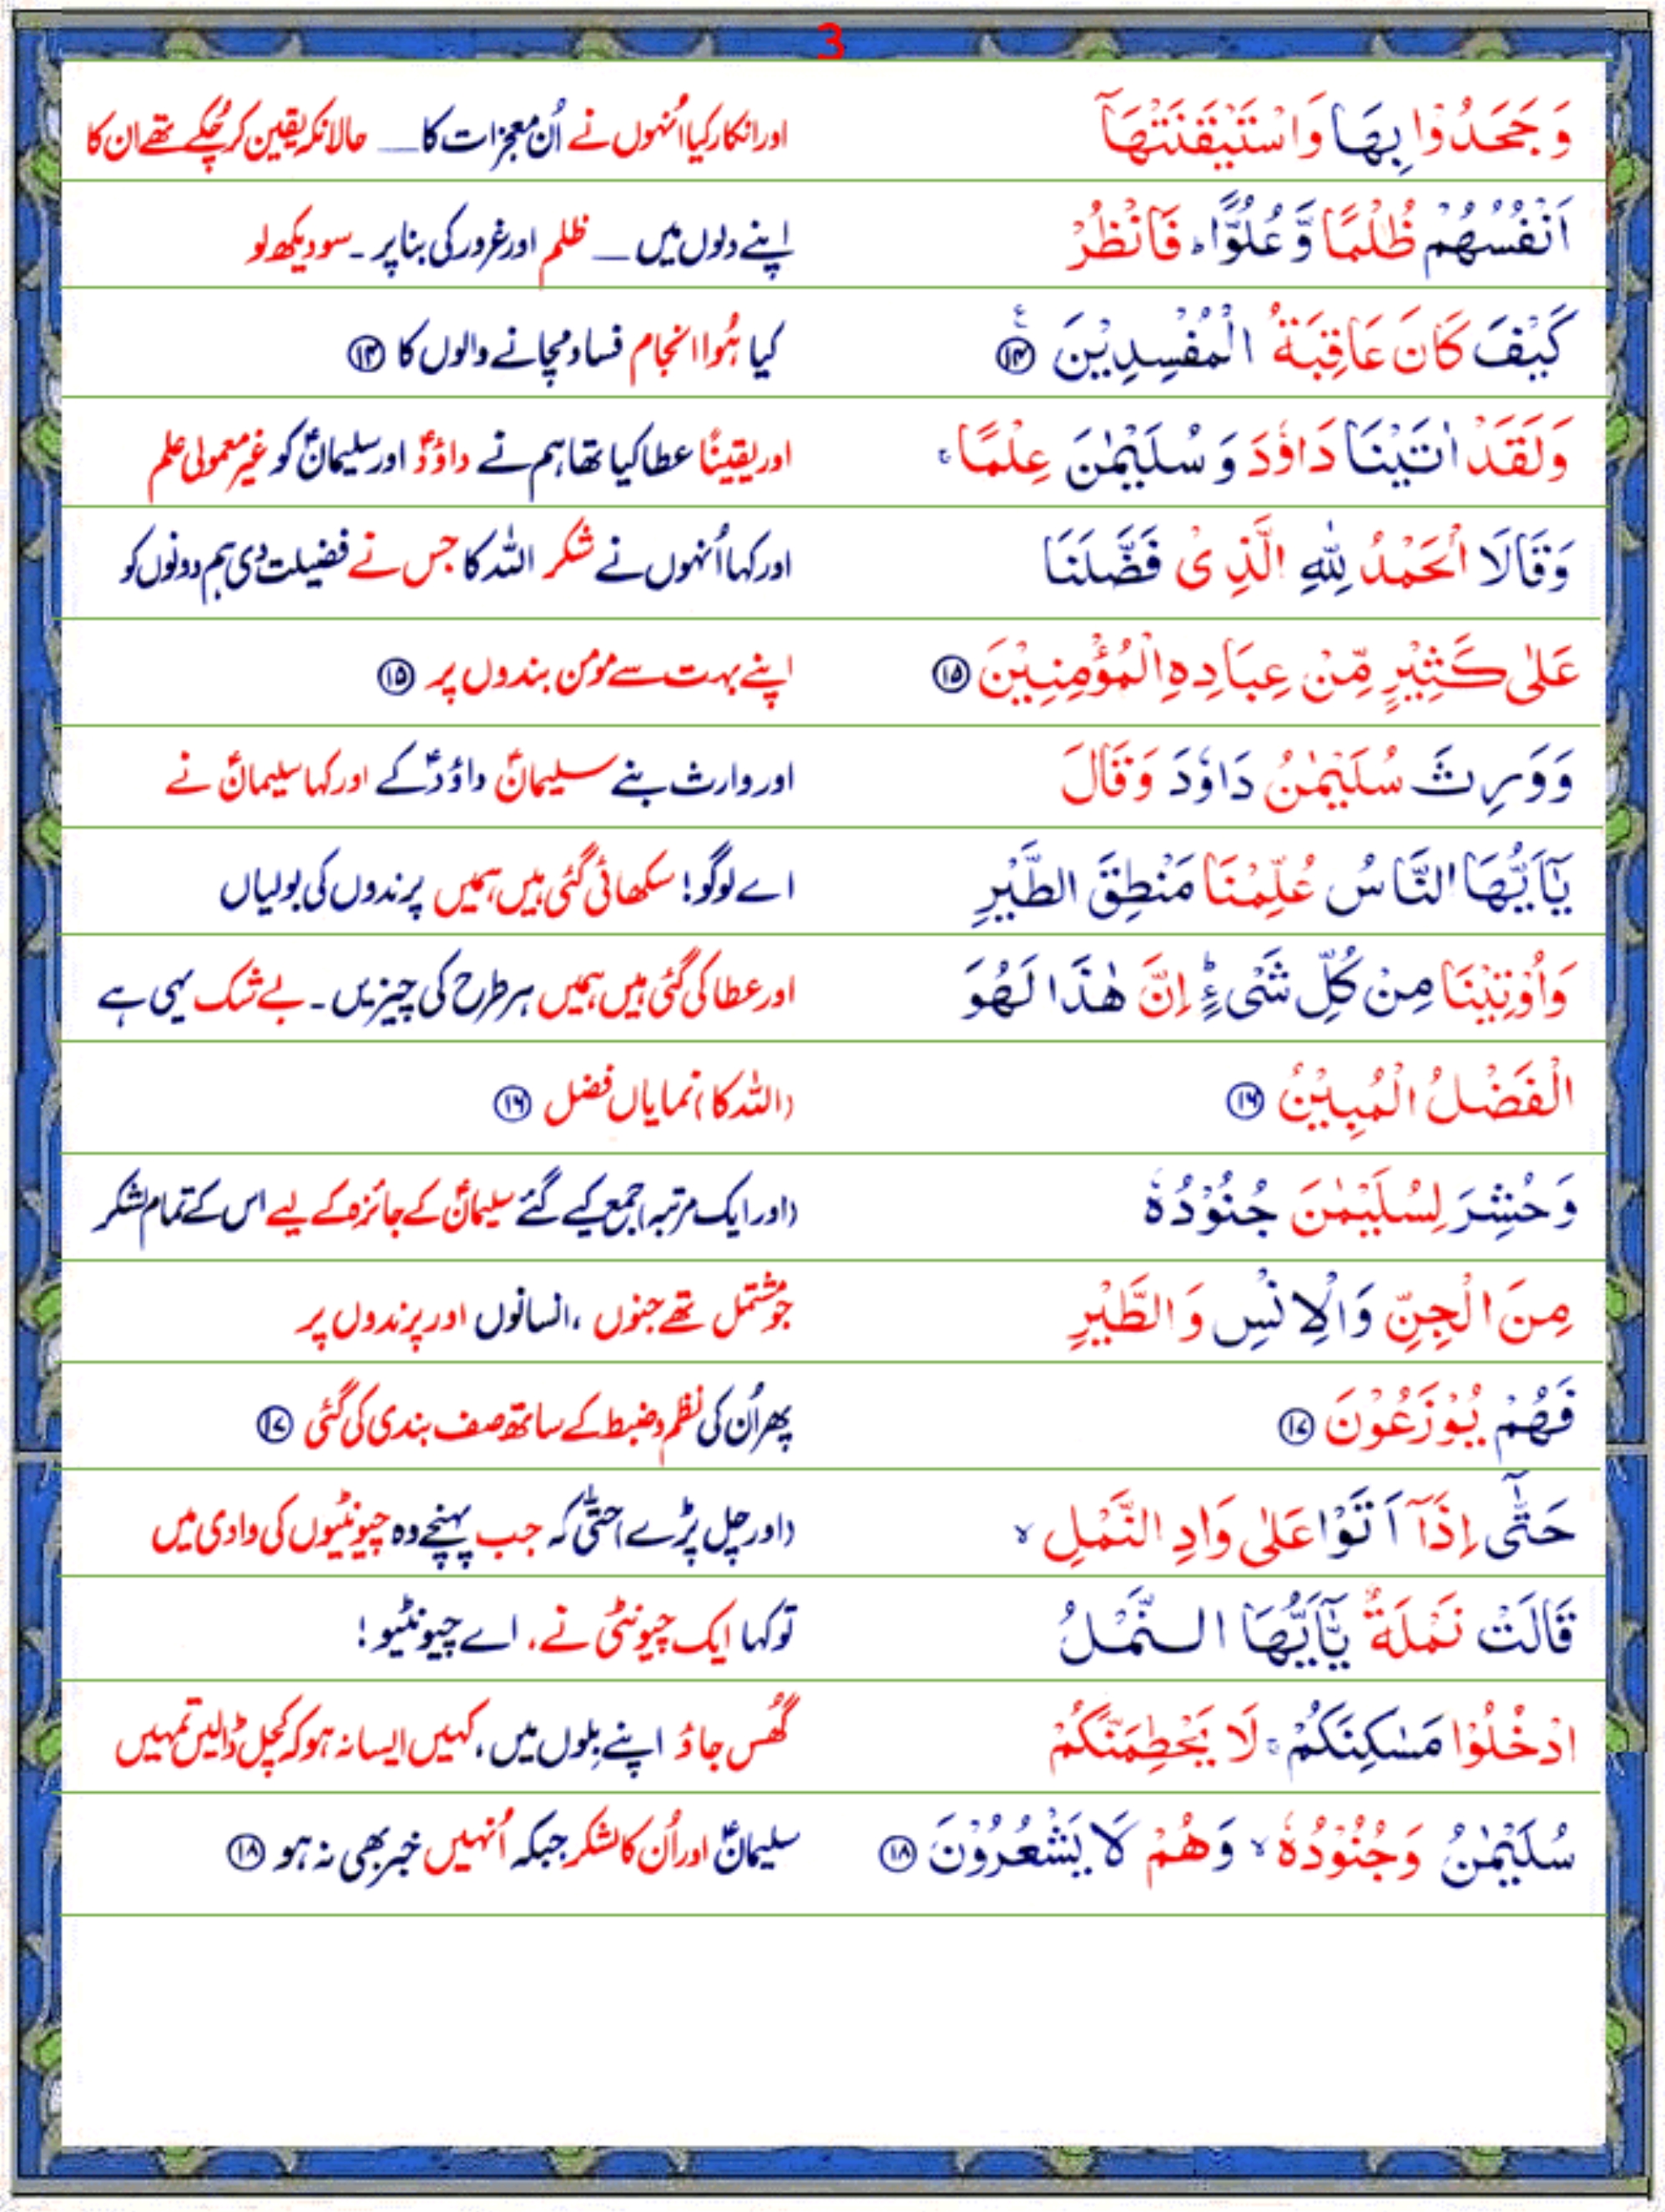 3
وَجَحَدُوْا بِهَا وَاسْتَيْقَنَتْهَاۤ اور انکار کیا اُنہوں نے اُن معجزات کا __ حالانکہ یقین کر چُکے تھے ان کا
اَنْفُسُهُمْ ظُلْمًا وَّعُلُوًّا ؕ فَانْظُرْ اپنے دلوں میں __ ظلم اور غرور کی بنا پر ۔ سو دیکھ لو
كَيْفَ كَانَ عَاقِبَةُ الْمُفْسِدِيْنَ ﴿۱۴﴾ ع کیا ہُوا انجام فساد مچانے والوں کا ﴿۱۴﴾
وَلَقَدْ اٰتَيْنَا دَاوٗدَ وَسُلَيْمٰنَ عِلْمًا ۚ اور یقینًا عطا کیا تھا ہم نے داؤدؑ اور سلیمانؑ کو غیر معمولی علم
وَقَالَا الْحَمْدُ لِلّٰهِ الَّذِىْ فَضَّلَنَا اور کہا اُنہوں نے شکر اللہ کا جس نے فضیلت دی ہم دونوں کو
عَلٰى كَثِيْرٍ مِّنْ عِبَادِهِ الْمُؤْمِنِيْنَ ﴿۱۵﴾ اپنے بہت سے مومن بندوں پر ﴿۱۵﴾
وَوَرِثَ سُلَيْمٰنُ دَاوٗدَ وَقَالَ اور وارث بنے سلیمانؑ داؤدؑ کے اور کہا سلیمانؑ نے
يٰۤاَيُّهَا النَّاسُ عُلِّمْنَا مَنْطِقَ الطَّيْرِ اے لوگو! سکھائی گئی ہیں ہمیں پرندوں کی بولیاں
وَاُوْتِيْنَا مِنْ كُلِّ شَىْءٍ ؕ اِنَّ هٰذَا لَهُوَ اور عطا کی گئی ہیں ہمیں ہر طرح کی چیزیں ۔ بے شک یہی ہے
الْفَضْلُ الْمُبِيْنُ ﴿۱۶﴾ (اللہ کا) نمایاں فضل ﴿۱۶﴾
وَحُشِرَ لِسُلَيْمٰنَ جُنُوْدُهٗ (اور ایک مرتبہ) جمع کیے گئے سلیمانؑ کے جائزہ کے لیے اس کے تمام لشکر
مِنَ الْجِنِّ وَالْاِنْسِ وَالطَّيْرِ جو مشتمل تھے جنوں ، انسانوں اور پرندوں پر
فَهُمْ يُوْزَعُوْنَ ﴿۱۷﴾ پھر اُن کی نظم و ضبط کے ساتھ صف بندی کی گئی ﴿۱۷﴾
حَتّٰۤى اِذَاۤ اَتَوْا عَلٰى وَادِ النَّمْلِ ۙ (اور چل پڑے) حتّٰی کہ جب پہنچے وہ چیونٹیوں کی وادی میں
قَالَتْ نَمْلَةٌ يّٰۤاَيُّهَا النَّمْلُ تو کہا ایک چیونٹی نے، اے چیونٹیو!
ادْخُلُوْا مَسٰكِنَكُمْ ۚ لَا يَحْطِمَنَّكُمْ گُھس جاؤ اپنے بِلوں میں، کہیں ایسا نہ ہو کہ کچل ڈالیں تمہیں
سُلَيْمٰنُ وَجُنُوْدُهٗ ۙ وَهُمْ لَا يَشْعُرُوْنَ ﴿۱۸﴾ سلیمانؑ اور اُن کا لشکر جبکہ اُنہیں خبر بھی نہ ہو ﴿۱۸﴾